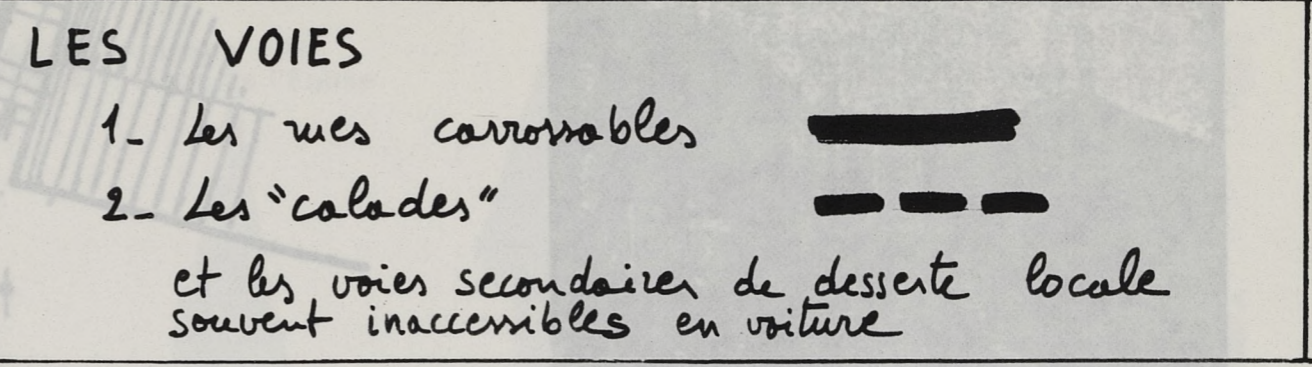 LES VOIES
1- Les rues carrossables
2- Les "calades"
et les voies secondaires de desserte locale
souvent inaccessibles en voiture